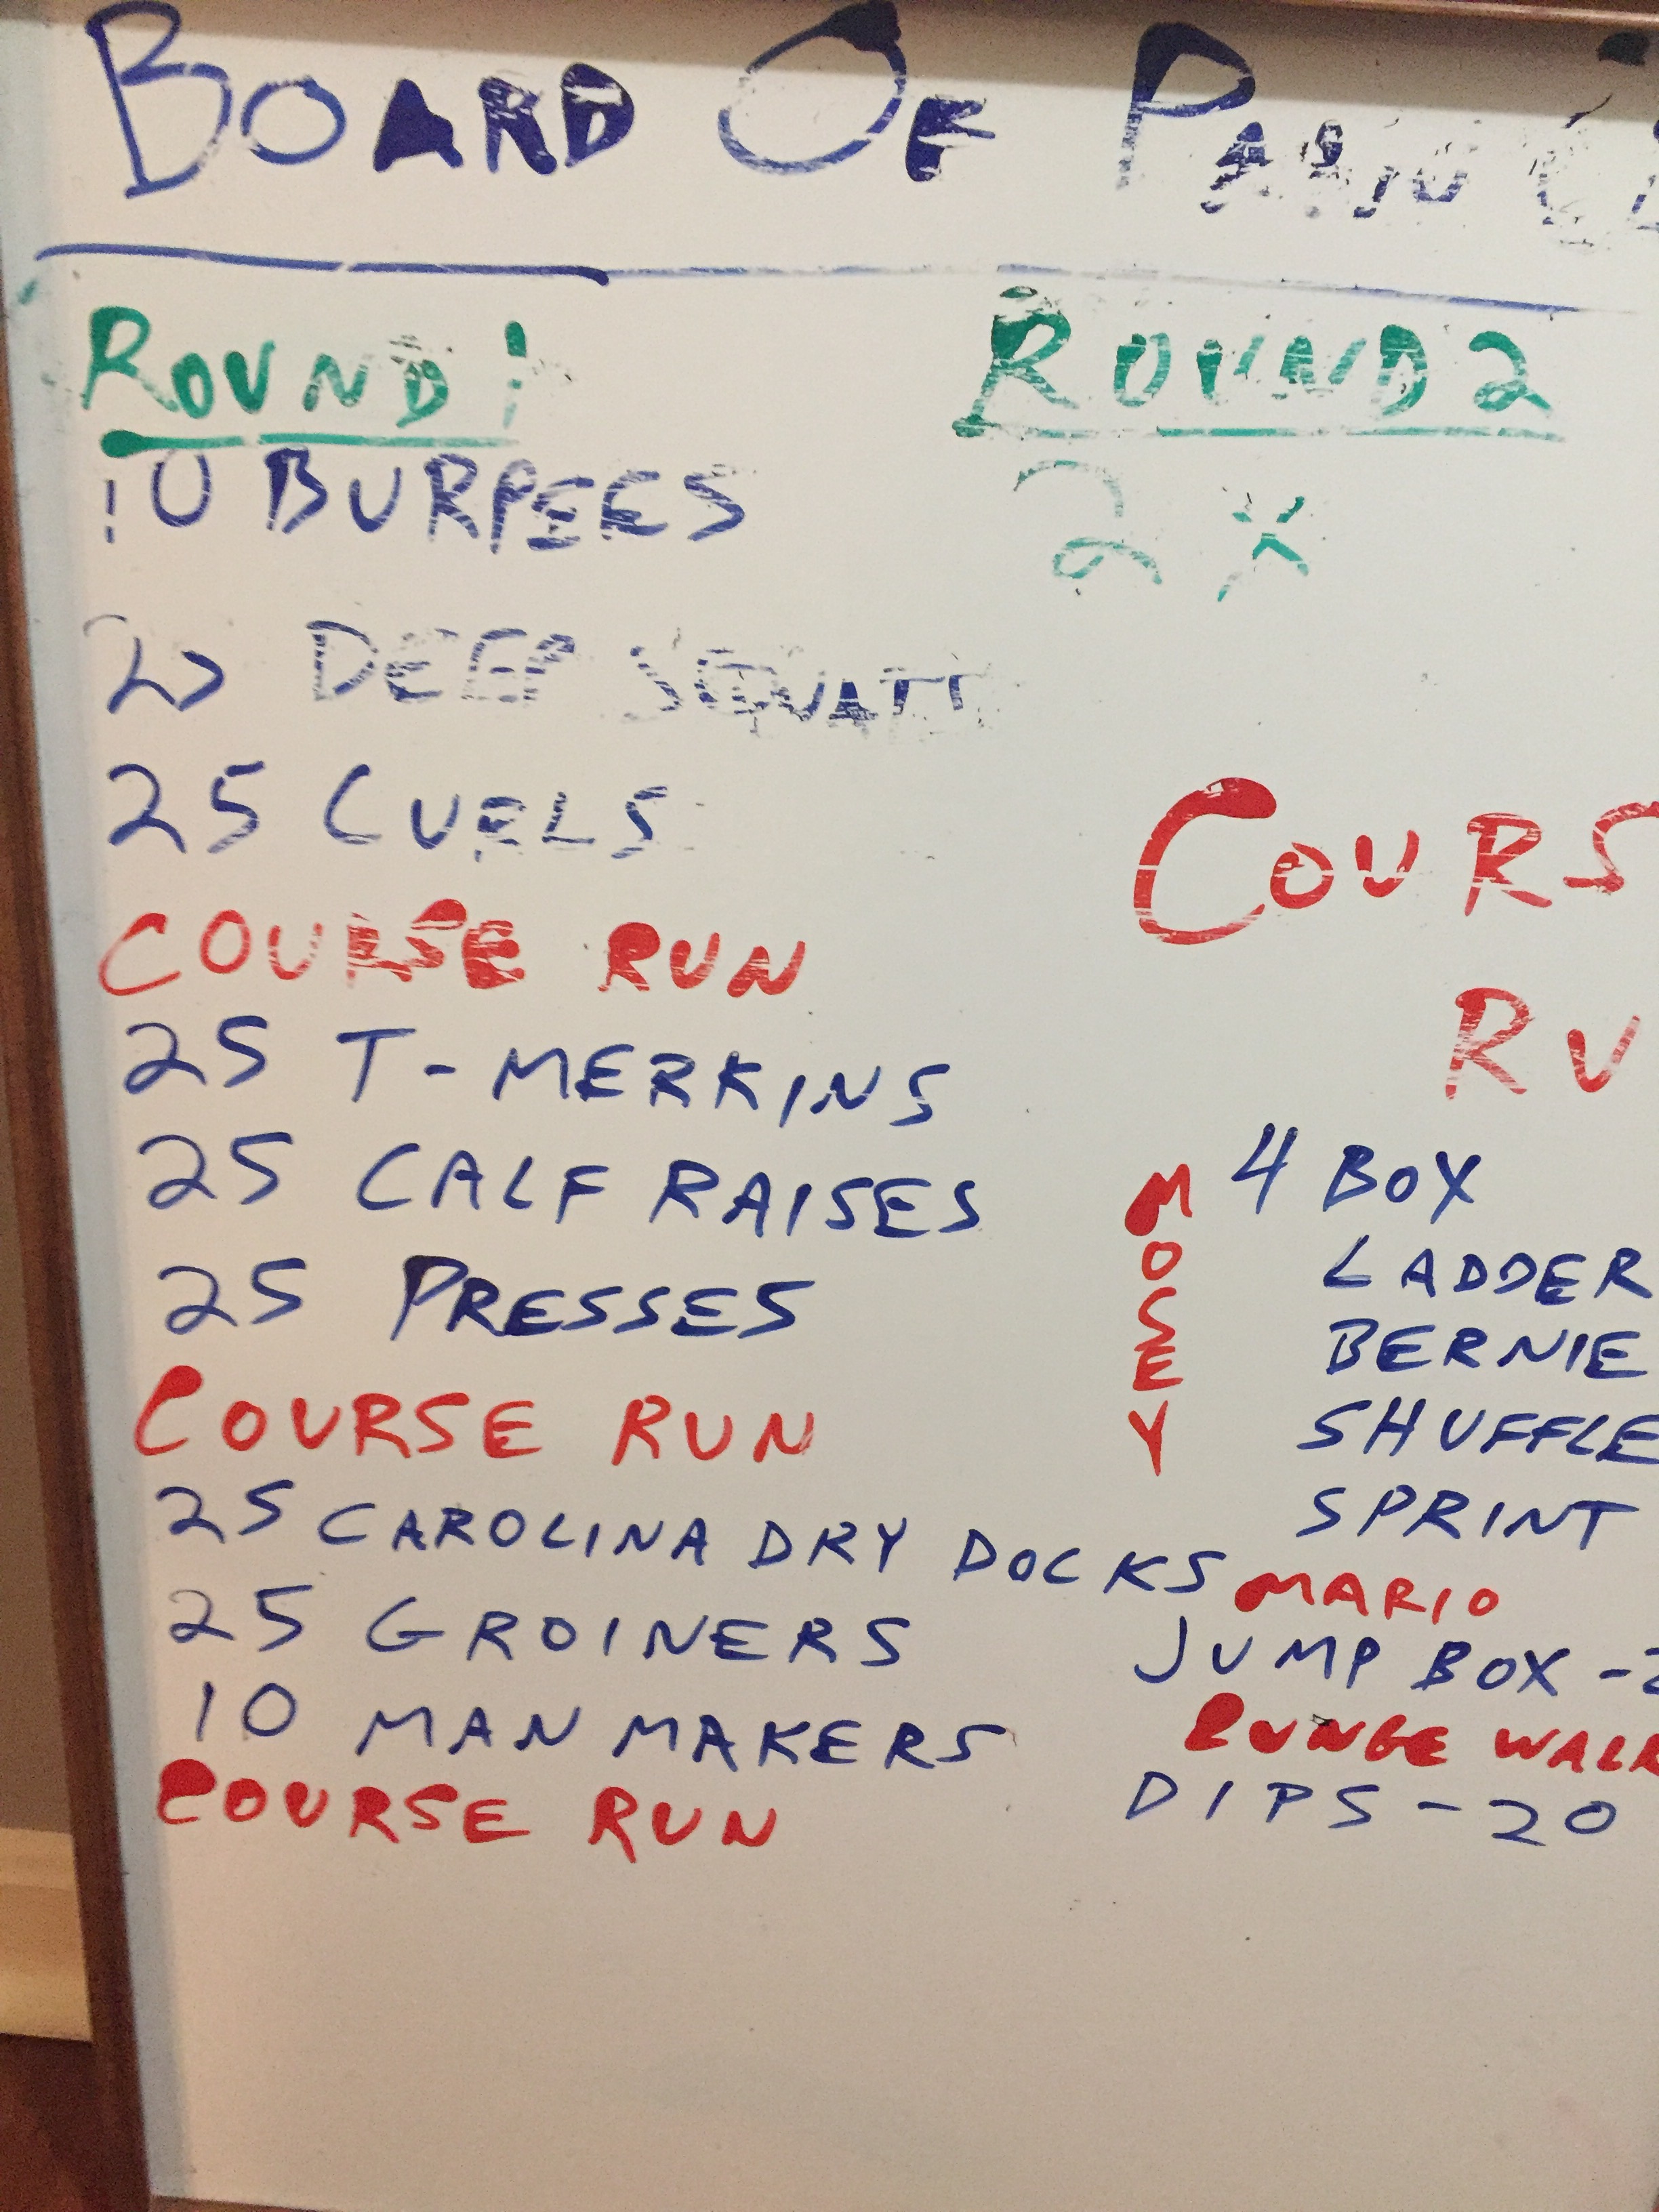 BOARD OF
ROUND 1
10 BURPEES
DEEP SQUATS
25 CURLS
COURSE RUN
25 T-MERKINS
25 CALF RAISES
25 PRESSES
COURSE RUN
25 CAROLINA DRY DOCKS
25 GROINERS
10 MAN MAKERS
COURSE RUN
ROUND 2
2 X
COURS
RU
MOSEY
4 BOX
LADDER
BERNIE
SHUFFLE
SPRINT
MARIO
JUMP BOX -2
LUNGE WALK
DIPS - 20